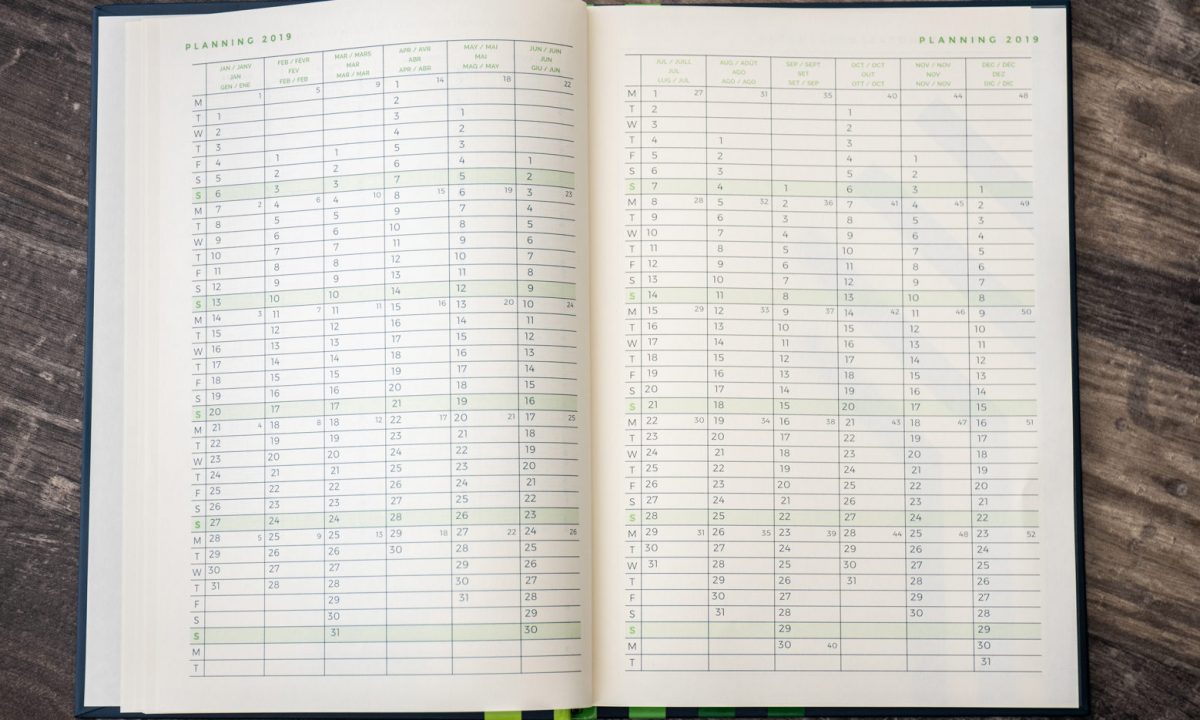 PLANNING 2019
JAN / JANV FEB / FÉVR MAR / MARS APR / AVR MAY / MAI JUN / JUIN
JAN FEV MAR ABR MAI JUN
GEN / ENE FEB / FEB MAR / MAR APR / ABR MAG / MAY GIU / JUN
M 1 5 9 1 14 18 22
T 1 2
W 2 3 1
T 3 4 2
F 4 1 1 5 3
S 5 2 2 6 4 1
S 6 3 3 7 5 2
M 7 2 4 6 4 10 8 15 6 19 3 23
T 8 5 5 9 7 4
W 9 6 6 10 8 5
T 10 7 7 11 9 6
F 11 8 8 12 10 7
S 12 9 9 13 11 8
S 13 10 10 14 12 9
M 14 3 11 7 11 11 15 16 13 20 10 24
T 15 12 12 16 14 11
W 16 13 13 17 15 12
T 17 14 14 18 16 13
F 18 15 15 19 17 14
S 19 16 16 20 18 15
S 20 17 17 21 19 16
M 21 4 18 8 18 12 22 17 20 21 17 25
T 22 19 19 23 21 18
W 23 20 20 24 22 19
T 24 21 21 25 23 20
F 25 22 22 26 24 21
S 26 23 23 27 25 22
S 27 24 24 28 26 23
M 28 5 25 9 25 13 29 18 27 22 24 26
T 29 26 26 30 28 25
W 30 27 27 29 26
T 31 28 28 30 27
F 29 31 28
S 30 29
S 31 30
M
T
PLANNING 2019
JUL / JUILL AUG / AOÛT SEP / SEPT OCT / OCT NOV / NOV DEC / DÉC
JUL AGO SET OUT NOV DEZ
LUG / JUL AGO / AGO SET / SEP OTT / OCT NOV / NOV DIC / DIC
M 1 27 31 35 40 44 48
T 2 1
W 3 2
T 4 1 3
F 5 2 4 1
S 6 3 5 2
S 7 4 1 6 3 1
M 8 28 5 32 2 36 7 41 4 45 2 49
T 9 6 3 8 5 3
W 10 7 4 9 6 4
T 11 8 5 10 7 5
F 12 9 6 11 8 6
S 13 10 7 12 9 7
S 14 11 8 13 10 8
M 15 29 12 33 9 37 14 42 11 46 9 50
T 16 13 10 15 12 10
W 17 14 11 16 13 11
T 18 15 12 17 14 12
F 19 16 13 18 15 13
S 20 17 14 19 16 14
S 21 18 15 20 17 15
M 22 30 19 34 16 38 21 43 18 47 16 51
T 23 20 17 22 19 17
W 24 21 18 23 20 18
T 25 22 19 24 21 19
F 26 23 20 25 22 20
S 27 24 21 26 23 21
S 28 25 22 27 24 22
M 29 31 26 35 23 39 28 44 25 48 23 52
T 30 27 24 29 26 24
W 31 28 25 30 27 25
T 29 26 31 28 26
F 30 27 29 27
S 31 28 30 28
S 29 29
M 30 40 30
T 31